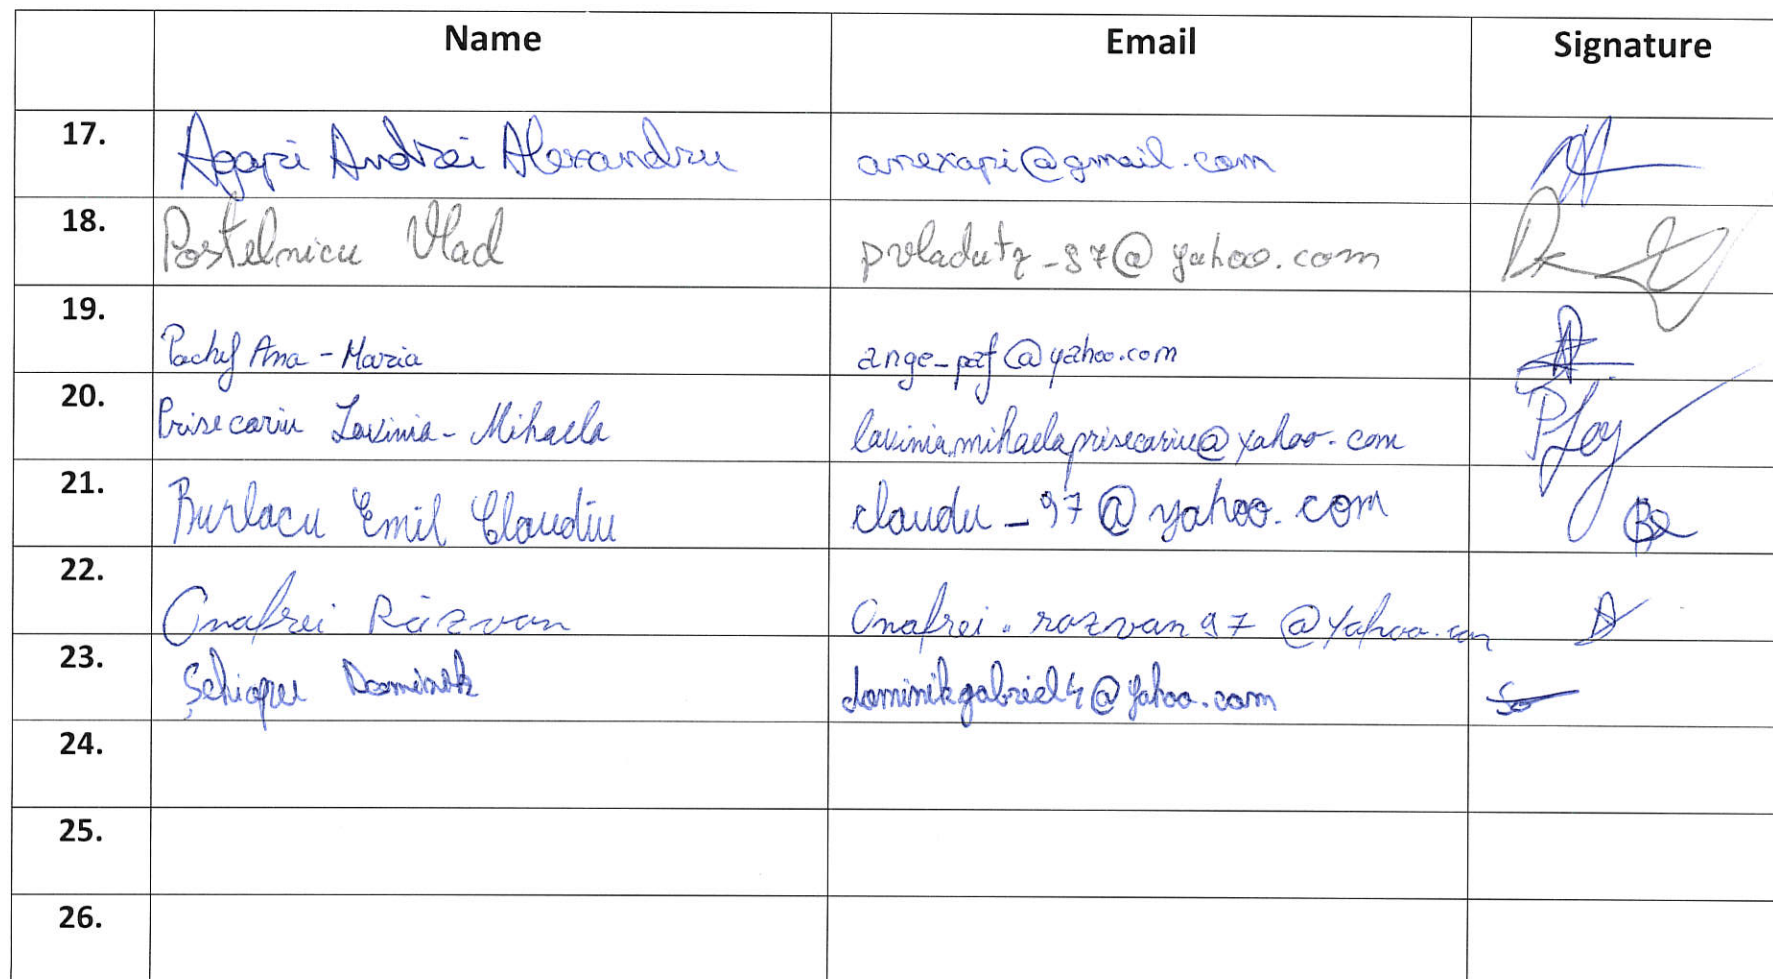 Name Email Signature
17. Agapi Andrei Alexandru anexapi@gmail.com
18. Postelnicu Vlad pvladutz_97@yahoo.com
19. Pachef Ana-Maria ange_paf@yahoo.com
20. Prisecariu Lavinia-Mihaela laviniamihaelaprisecariu@yahoo.com
21. Burlacu Emil Claudiu claudu_97@yahoo.com
22. Onofrei Răzvan Onofrei.razvan97@yahoo.com
23. Șchiopu Dominik dominikgabriel4@yahoo.com
24.
25.
26.